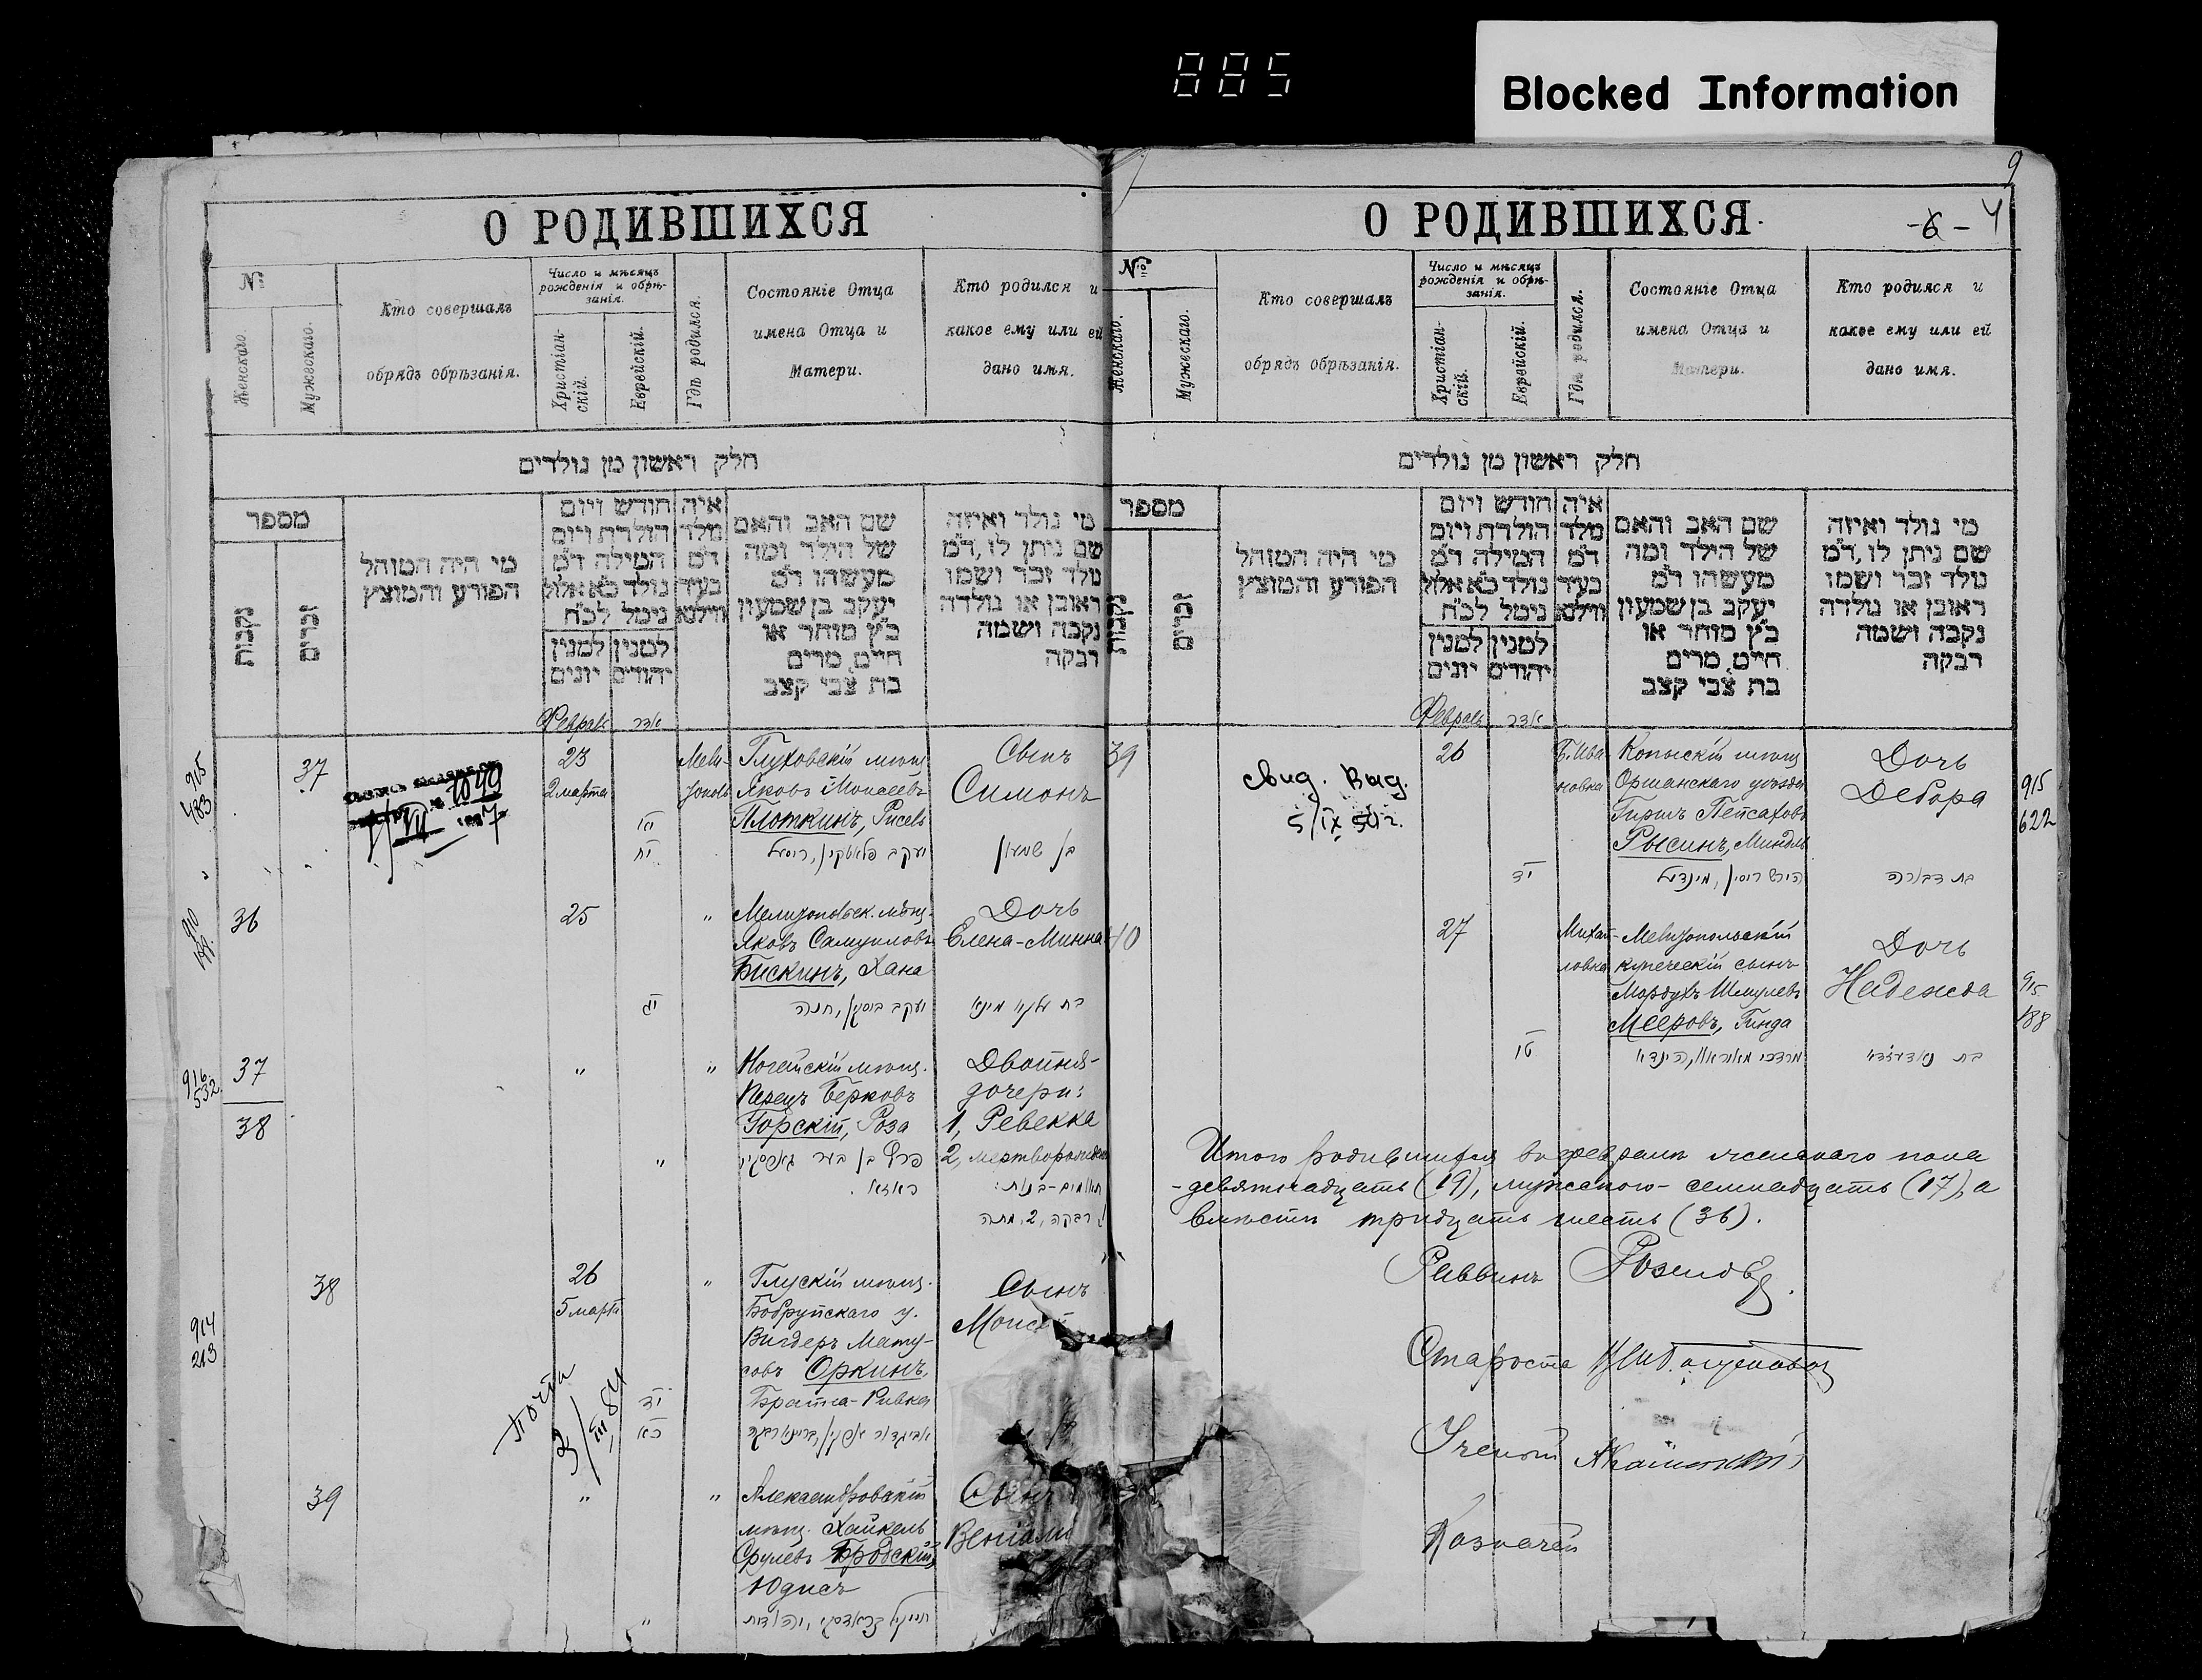 885
Blocked Information
О РОДИВШИХСЯ
№
Женскаго.
Мужескаго.
Кто совершалъ
обрядъ обрѣзанія.
Число и мѣсяцъ
рожденія и обрѣ-
занія.
Христіан-
скій.
Еврейскій.
Гдѣ родился.
Состояніе Отца
имена Отца и
Матери.
Кто родился и
какое ему или ей
дано имя.
חלק ראשון מן נולדים
מספר
נקבות
זכרים
מי היה המוהל
הפורע והמוצץ
חודש ויום
הולדת ויום
המילה ד״מ
נולד כ״א אלול
נימל לכ״ח
למנין
יהודים
למנין
יונים
איה
מלד
ד״מ
בעיר
ווילנא
שם האב והאם
של הילד ומה
מעשהו ד״מ
יעקב בן שמעון
כ״ץ סוחר או
חיים, מרים
בת צבי קצב
מי נולד ואיזה
שם ניתן לו, ד״מ
נולד זכר ושמו
ראובן או נולדה
נקבה ושמה
רבקה
Февраль אדר
915
483
37
1049
23
2 марта
Мели-
тополь
Глуховскій мѣщ.
Яковъ Моисеевъ
Плоткинъ, Рисель
יעקב פלאטקין,
Сынъ
Симонъ
בן שמעון
36
25
"
Мелитопольск. мѣщ.
Яковъ Самуиловъ
Бискинъ, Хана
יעקב ביסקין, חנה
Дочь
Елена-Минна
916
532
37
38
"
"
Ногайскій мѣщ.
Перецъ Берковъ
Горскій, Роза
"
Двойня-
дочери:
1, Ревекка
2, мертворожден
תאומים-בנות:
1 רבקה, 2, מתה
914
213
38
26
5 марта
"
Глускій мѣщ.
Бобруйскаго у.
Вигдеръ Мату-
совъ Оркинъ,
Ривка
Сынъ
Моисе
почта
3/III 84
39
"
"
Александровскій
мѣщ. Хайкель
Срулевъ Бродскій,
Юдисъ
"
Сынъ
Веніами
9
-6- 4
О РОДИВШИХСЯ
№
Женскаго.
Мужескаго.
Кто совершалъ
обрядъ обрѣзанія.
Число и мѣсяцъ
рожденія и обрѣ-
занія.
Христіан-
скій.
Еврейскій.
Гдѣ родился.
Состояніе Отца
имена Отца и
Матери.
Кто родился и
какое ему или ей
дано имя.
חלק ראשון מן נולדים
מספר
נקבות
זכרים
מי היה המוהל
הפורע והמוצץ
חודש ויום
הולדת ויום
המילה ד״מ
נולד כ״א אלול
נימל לכ״ח
למנין
יהודים
למנין
יונים
איה
מלד
ד״מ
בעיר
ווילנא
שם האב והאם
של הילד ומה
מעשהו ד״מ
יעקב בן שמעון
כ״ץ סוחר או
חיים, מרים
בת צבי קצב
מי נולד ואיזה
שם ניתן לו, ד״מ
נולד זכר ושמו
ראובן או נולדה
נקבה ושמה
רבקה
Февраль אדר
39
свид. выд.
5/IX 50 г.
26
יד
Копыскій мѣщ.
Оршанскаго уѣзда
Гиршъ Пейсаховъ
Рысинъ, Миндль
הירש ריסין, מינדיל
Дочь
Дебора
בת דבורה
915
622
40
27
טו
Михай-
ловка
Мелитопольскій
купеческій сынъ
Мордухъ Шмулевъ
Мееровъ, Гинда
Дочь
Надежда
915
188
Итого родившихся въ февралѣ женскаго пола
-девятнадцать (19), мужского- семнадцать (17), а
вмѣстѣ тридцать шесть (36).
Раввинъ
Староста
Ученый
Казначей